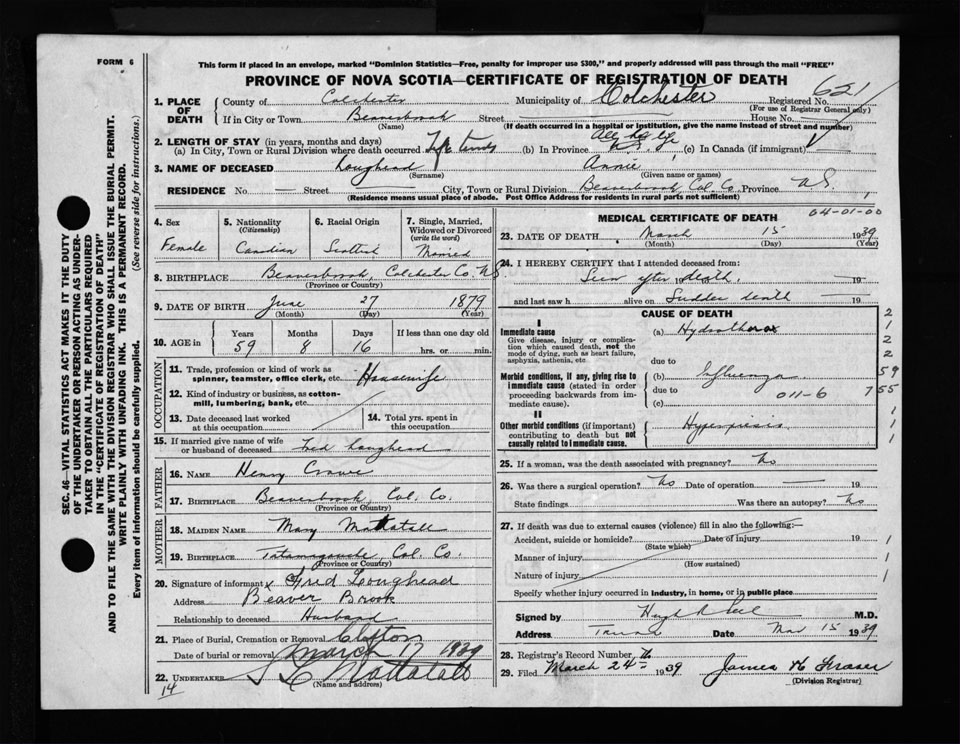 FORM 6
This form if placed in an envelope, marked "Dominion Statistics—Free, penalty for improper use $300," and properly addressed will pass through the mail "FREE"
PROVINCE OF NOVA SCOTIA—CERTIFICATE OF REGISTRATION OF DEATH
SEC. 46—VITAL STATISTICS ACT MAKES IT THE DUTY
OF THE UNDERTAKER OR PERSON ACTING AS UNDER-
TAKER TO OBTAIN ALL THE PARTICULARS REQUIRED
IN THE "CERTIFICATE OF REGISTRATION OF DEATH"
AND TO FILE THE SAME WITH THE DIVISION REGISTRAR WHO SHALL ISSUE THE BURIAL PERMIT.
WRITE PLAINLY WITH UNFADING INK. THIS IS A PERMANENT RECORD.
Every item of information should be carefully supplied. (See reverse side for instructions.)
1. PLACE OF DEATH County of Colchester Municipality of Colchester Registered No. 621
(For use of Registrar General only)
If in City or Town Beaverbrook Street House No.
(Name) (If death occurred in a hospital or institution, give the name instead of street and number)
2. LENGTH OF STAY (in years, months and days)
(a) In City, Town or Rural Division where death occurred (b) In Province All her life (c) In Canada (if immigrant)
3. NAME OF DECEASED Loughead Annie
(Surname) (Given name or names)
RESIDENCE No. — Street City, Town or Rural Division Beaverbrook, Col. Co. Province N.S.
(Residence means usual place of abode. Post Office Address for residents in rural parts not sufficient)
4. Sex Female
5. Nationality (Citizenship) Canadian
6. Racial Origin Scottish
7. Single, Married, Widowed or Divorced (write the word) Married
8. BIRTHPLACE Beaverbrook, Colchester Co. N.S.
(Province or Country)
9. DATE OF BIRTH June 27 1879
(Month) (Day) (Year)
10. AGE in Years 59 Months 8 Days 16 If less than one day old hrs. or min.
OCCUPATION
11. Trade, profession or kind of work as spinner, teamster, office clerk, etc. Housewife
12. Kind of industry or business, as cotton-mill, lumbering, bank, etc.
13. Date deceased last worked at this occupation
14. Total yrs. spent in this occupation
15. If married give name of wife or husband of deceased Fred Loughead
FATHER
16. NAME Henry Crowe
17. BIRTHPLACE Beaverbrook, Col. Co.
(Province or Country)
MOTHER
18. MAIDEN NAME Mary Mattatall
19. BIRTHPLACE Tatamagouche, Col. Co.
(Province or Country)
20. Signature of informant x Fred Loughead
Address Beaver Brook
Relationship to deceased Husband
21. Place of Burial, Cremation or Removal Clifton
Date of burial or removal March 17 1939
22. UNDERTAKER Mattatall
(Name and address)
14
MEDICAL CERTIFICATE OF DEATH
04-01-00
23. DATE OF DEATH March 15 1939
(Month) (Day) (Year)
24. I HEREBY CERTIFY that I attended deceased from:
Seen after death. 19
and last saw h alive on Sudden death 19
CAUSE OF DEATH
I
Immediate cause
Give disease, injury or complication which caused death, not the mode of dying, such as heart failure, asphyxia, asthenia, etc.
(a) Hydrothorax
due to
Morbid conditions, if any, giving rise to immediate cause (stated in order proceeding backwards from immediate cause).
(b) Influenza
due to 011-6
(c)
II
Other morbid conditions (if important) contributing to death but not causally related to immediate cause.
Hyperpiesis
2
1
2
2
59
7 55
1
1
1
25. If a woman, was the death associated with pregnancy? No
26. Was there a surgical operation? No Date of operation — 19
State findings Was there an autopsy? No
27. If death was due to external causes (violence) fill in also the following:—
Accident, suicide or homicide? Date of injury 19
(State which)
Manner of injury
(How sustained)
Nature of injury
1
1
1
Specify whether injury occurred in industry, in home, or in public place
Signed by M.D.
Address Truro Date Mar 15 1939
28. Registrar's Record Number
29. Filed March 24th 1939 James H Fraser
(Division Registrar)